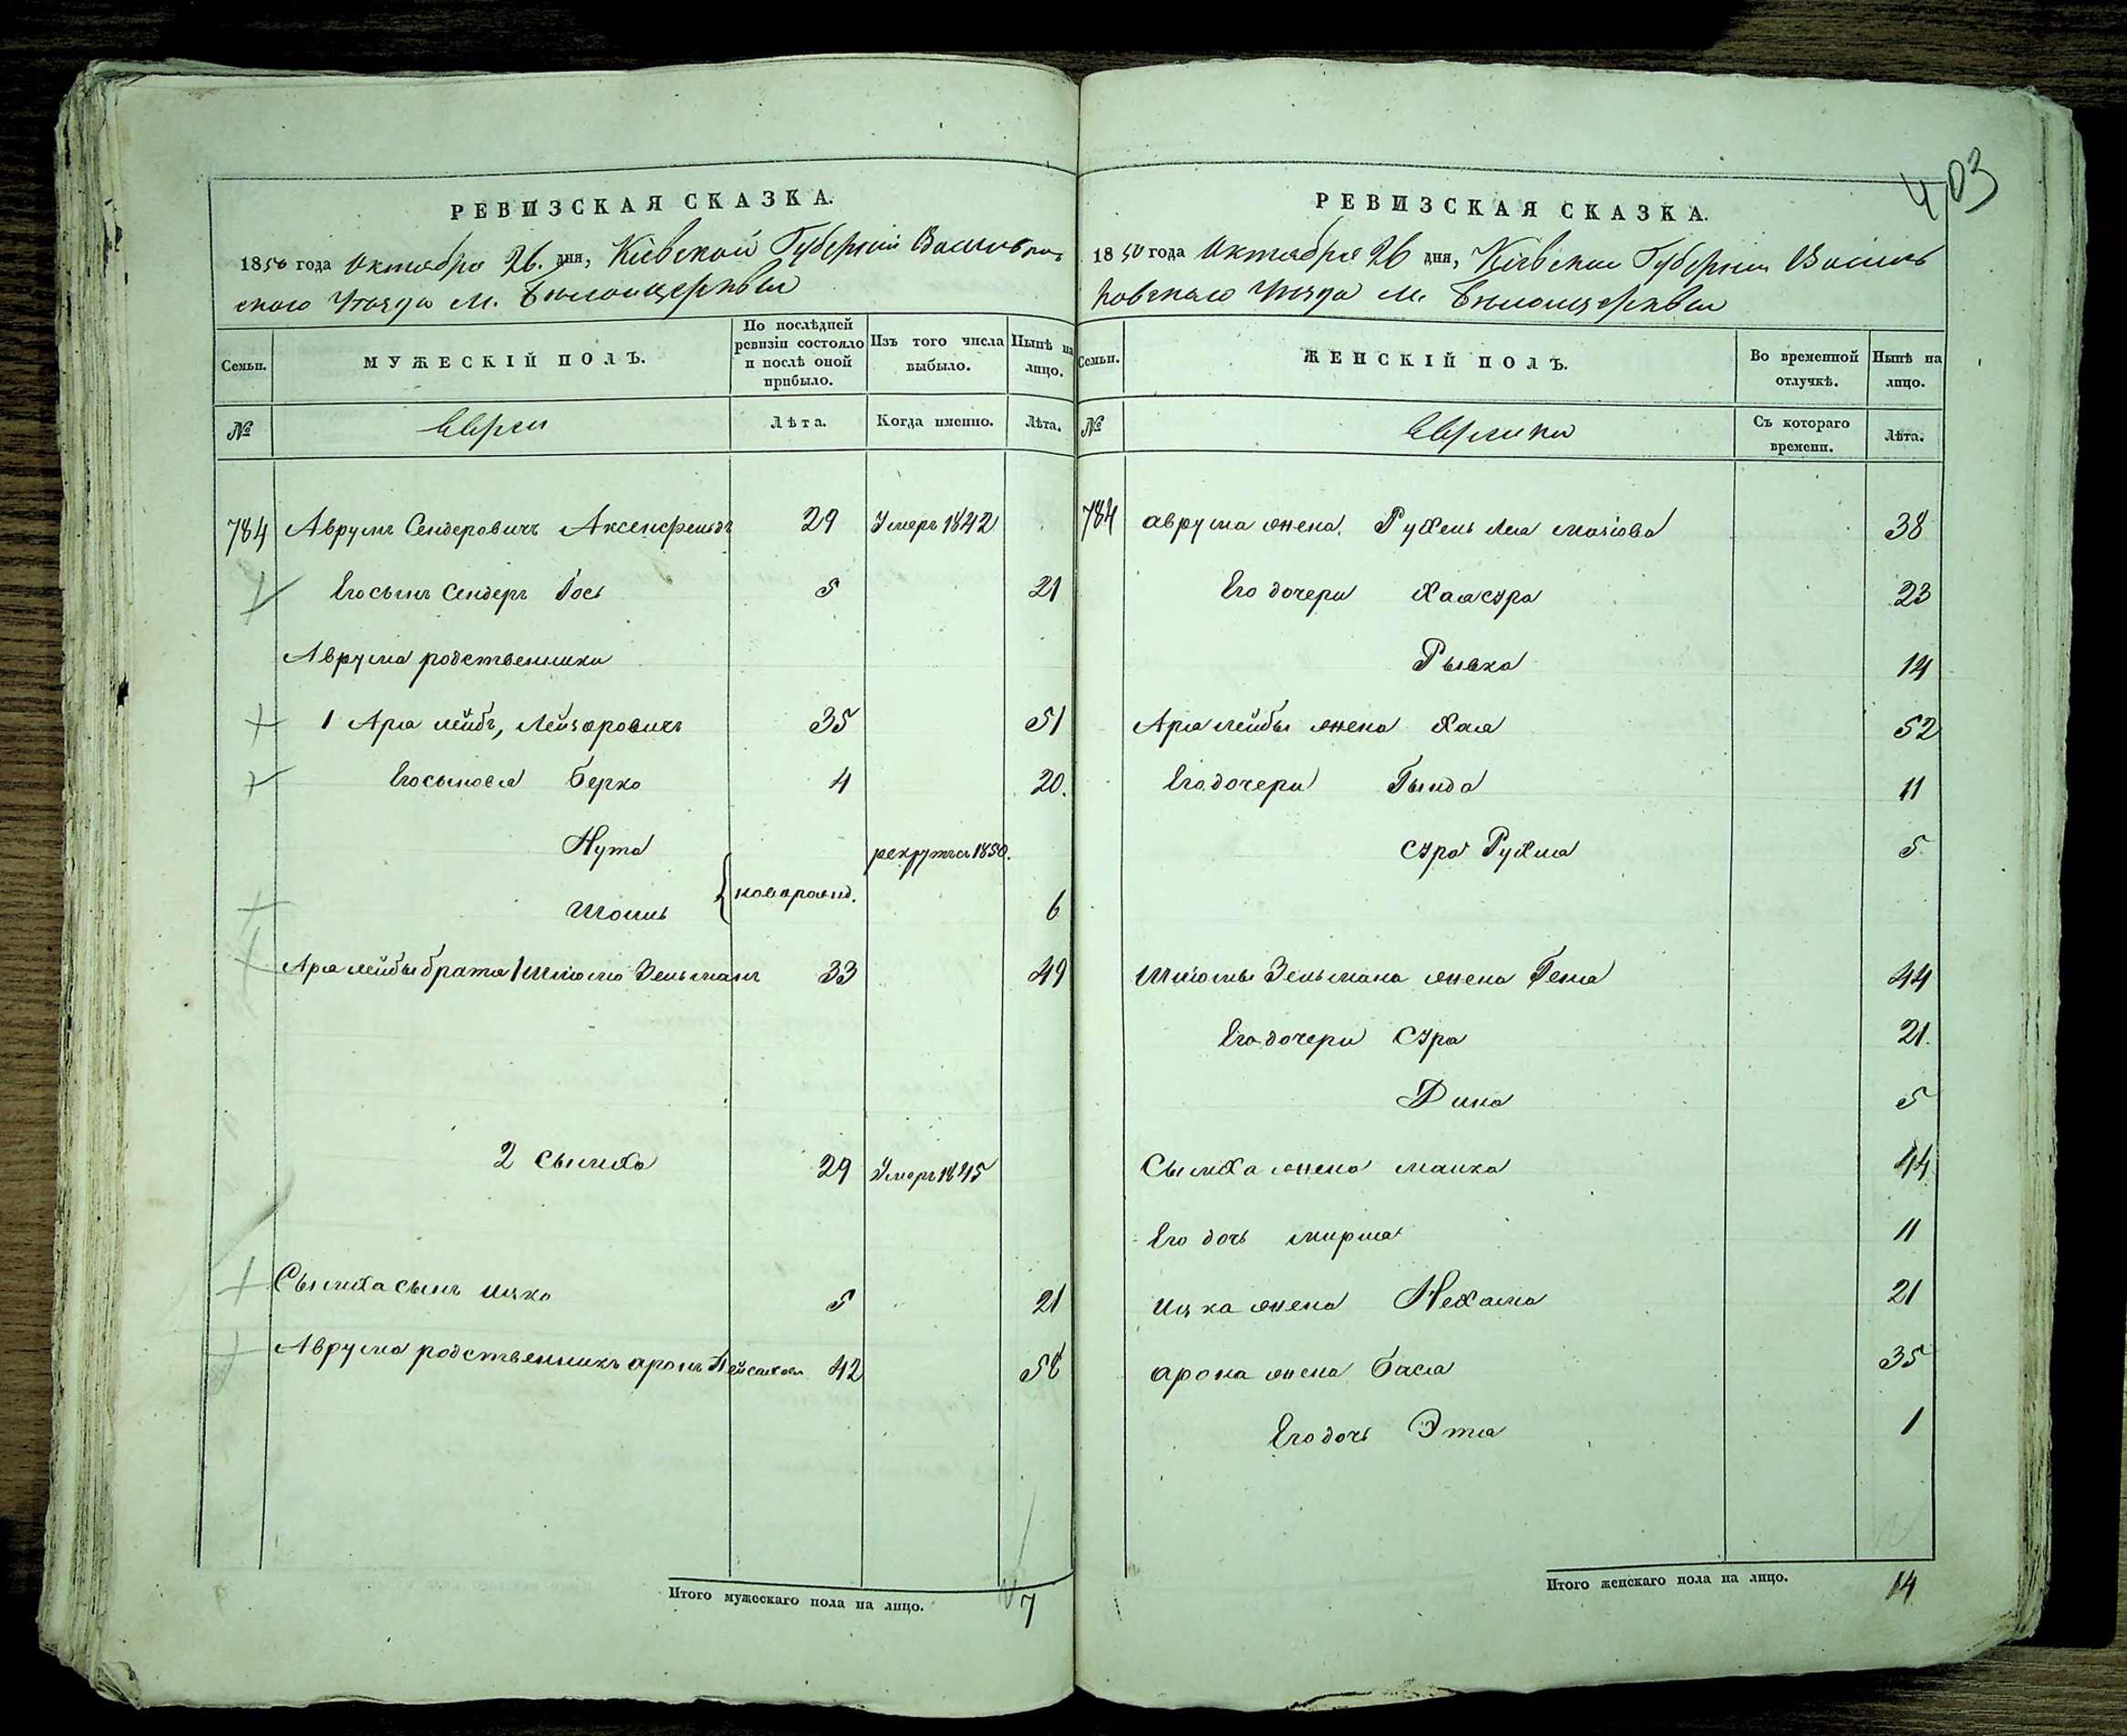 403
РЕВИЗСКАЯ СКАЗКА.
1850 года Октября 26. дня, Кіевской Губерніи Васильков-
ского Уѣзда М. Бѣлоицерквы
Семьи.
МУЖЕСКІЙ ПОЛЪ.
По послѣдней ревизіи состояло и послѣ оной прибыло.
Изъ того числа выбыло.
Нынѣ на лицо.
№
Евреи
Лѣта.
Когда именно.
Лѣта.
784 Аврумъ Сендеровичъ Аксенфельдъ 29 Умеръ 1842
Его сынъ Сендеръ Іось 5 21
Аврума родственники
1 Арія лейбъ, Лейзоровичъ 35 51
Его сыновья Берко 4 20.
Нута рекрутъ 1850.
новорожд.
Шоиль 6
Арія лейбы братья 1 Шліома Зельманъ 33 49
2 Сымха 29 Умеръ 1845
Сымха сынъ Ицко 5 21
Аврума родственникъ аронъ Пейсахов 42 58
Итого мужескаго пола на лицо. 7
РЕВИЗСКАЯ СКАЗКА.
1850 года Октября 26 дня, Кіевской Губерніи Василь
ковскаго Уѣзда М. Бѣлоицерквы
Семьи.
ЖЕНСКІЙ ПОЛЪ.
Во временной отлучкѣ.
Нынѣ на лицо.
№
Еврейки
Съ котораго времени.
Лѣта.
784 аврума жена. Рухель Леа 38
Его дочери Хаясура 23
Рывка 14
Аріа лейбы жена Хая 52
Его дочери Гында 11
Сура Рухля 5
Шліомы Зельмана жена Геня 44
Его дочери Сура 21.
Дина 5
Сымха жена манка 44
Его дочь мирля 11
Ицка жена Нехама 21
арона жена Бася 35
Его дочь Этя 1
Итого женскаго пола на лицо. 14